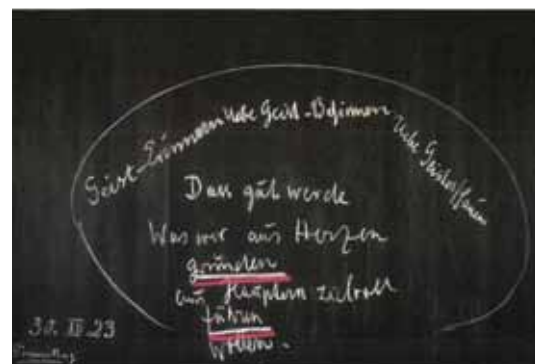 Geist-Erinnern Uebe Geist-Besinnen Uebe Geisterschauen
Dass gut werde
Was wir aus Herzen
gründen
aus Häuptern zielvoll
führen
wollen.
30. XII. 23